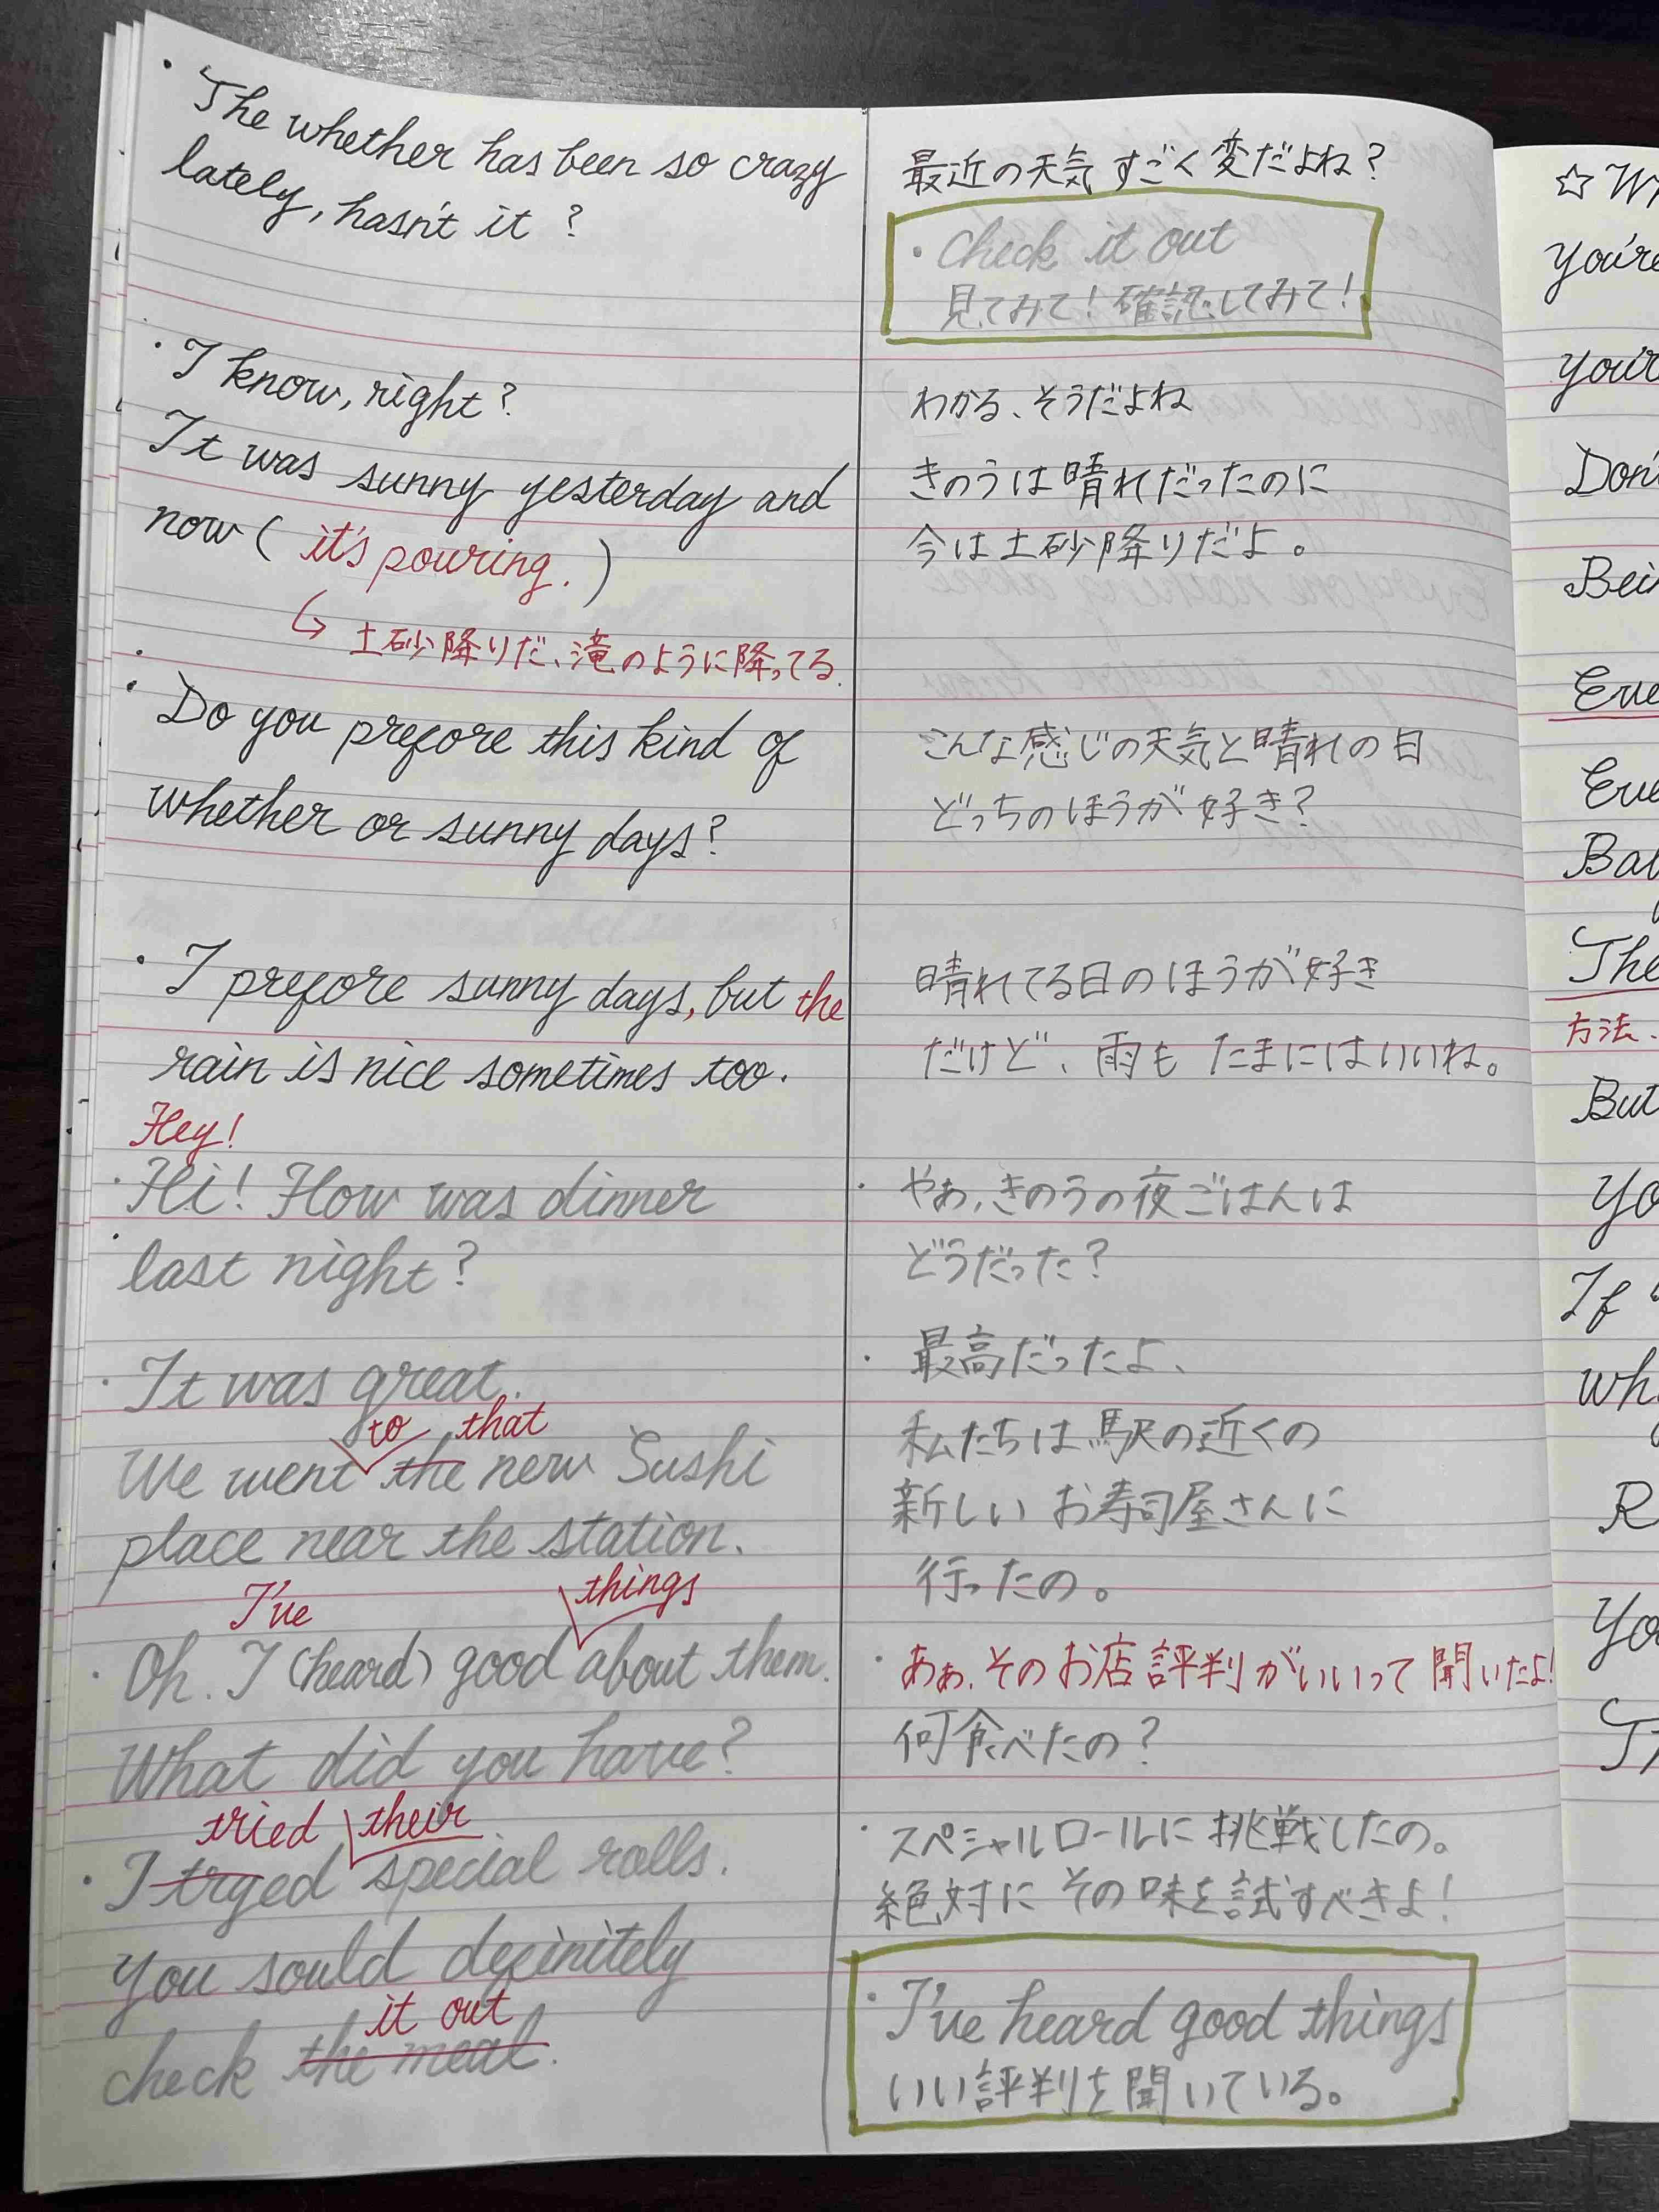 ・The whether has been so crazy
lately, hasn't it ?
・I know, right?
It was sunny yesterday and
now ( it's pouring. )
↳ 土砂降りだ、滝のように降ってる.
・Do you prefore this kind of
whether or sunny days?
・I prefore sunny days, but the
rain is nice sometimes too.
Hey!
・Hi! How was dinner
last night?
・It was great.
to that
We went the new Sushi
place near the station.
I've things
・Oh. I (heard) good about them.
What did you have?
tried their
・I tryed special rolls.
You sould definitely
it out
check the meal.
最近の天気すごく変だよね?
・Check it out
見てみて!確認してみて!
わかる、そうだよね
きのうは晴れだったのに
今は土砂降りだよ。
こんな感じの天気と晴れの日
どっちのほうが好き?
晴れてる日のほうが好き
だけど、雨も たまにはいいね。
・やあ、きのうの夜ごはんは
どうだった?
・最高だったよ、
私たちは駅の近くの
新しい お寿司屋さんに
行ったの。
・あぁ、そのお店評判がいいって聞いたよ!
何食べたの?
・スペシャルロールに挑戦したの。
絶対に その味を試すべきよ!
・I've heard good things
いい評判を聞いている。
☆
You're
Don'
方法、
But
If